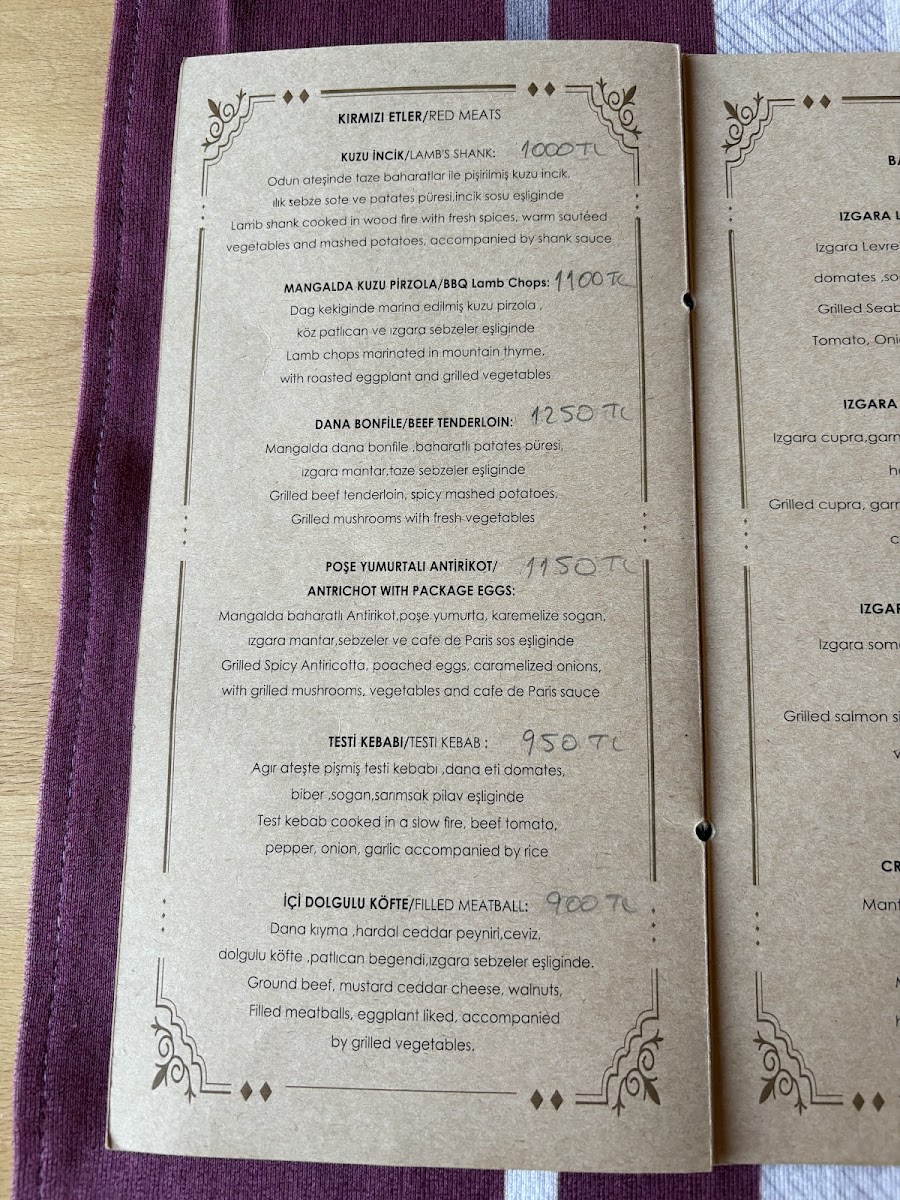 KIRMIZI ETLER/RED MEATS
KUZU İNCİK/LAMB'S SHANK: 1000 TL
Odun ateşinde taze baharatlar ile pişirilmiş kuzu incik,
ılık sebze sote ve patates püresi,incik sosu eşliginde
Lamb shank cooked in wood fire with fresh spices, warm sautéed
vegetables and mashed potatoes, accompanied by shank sauce
MANGALDA KUZU PİRZOLA/BBQ Lamb Chops: 1100 TL
Dag kekiginde marina edilmiş kuzu pirzola ,
köz patlıcan ve ızgara sebzeler eşliginde
Lamb chops marinated in mountain thyme,
with roasted eggplant and grilled vegetables
DANA BONFİLE/BEEF TENDERLOIN: 1250 TL
Mangalda dana bonfile ,baharatlı patates püresi,
ızgara mantar,taze sebzeler eşliginde
Grilled beef tenderloin, spicy mashed potatoes,
Grilled mushrooms with fresh vegetables
POŞE YUMURTALI ANTİRİKOT/ 1150 TL
ANTRICHOT WITH PACKAGE EGGS:
Mangalda baharatlı Antirikot,poşe yumurta, karemelize sogan,
ızgara mantar,sebzeler ve cafe de Paris sos eşliginde
Grilled Spicy Antiricotta, poached eggs, caramelized onions,
with grilled mushrooms, vegetables and cafe de Paris sauce
TESTİ KEBABI/TESTI KEBAB : 950 TL
Agır ateşte pişmiş testi kebabı ,dana eti domates,
biber ,sogan,sarımsak pilav eşliginde
Test kebab cooked in a slow fire, beef tomato,
pepper, onion, garlic accompanied by rice
İÇİ DOLGULU KÖFTE/FILLED MEATBALL: 900 TL
Dana kıyma ,hardal ceddar peyniri,ceviz,
dolgulu köfte ,patlıcan begendi,ızgara sebzeler eşliginde.
Ground beef, mustard ceddar cheese, walnuts,
Filled meatballs, eggplant liked, accompanied
by grilled vegetables.
BA
IZGARA L
Izgara Levre
domates ,so
Grilled Seab
Tomato, Oni
IZGARA
Izgara cupra,garn
Grilled cupra, garn
c
IZGAR
Izgara som
Grilled salmon si
CR
Mant